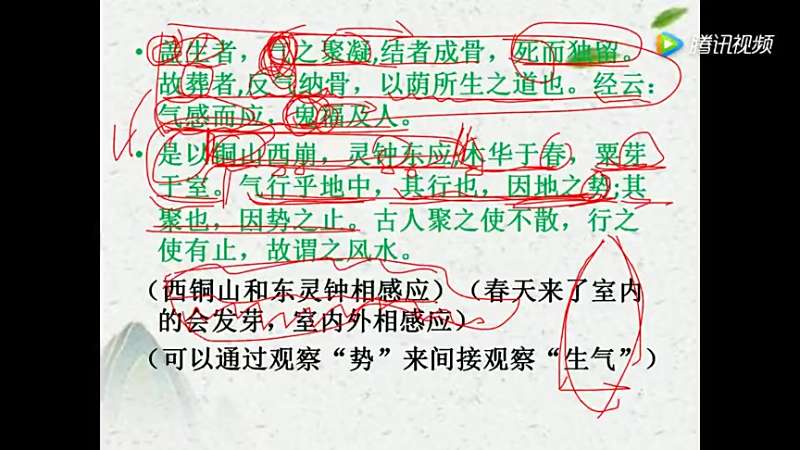 腾讯视频
•盖生者，气之聚凝,结者成骨，死而独留。
故葬者,反气纳骨，以荫所生之道也。经云：
气感而应，鬼福及人。
•是以铜山西崩，灵钟东应,木华于春，粟芽
于室。气行乎地中，其行也，因地之势;其
聚也，因势之止。古人聚之使不散，行之
使有止，故谓之风水。
（西铜山和东灵钟相感应）（春天来了室内
的会发芽，室内外相感应）
（可以通过观察“势”来间接观察“生气”）